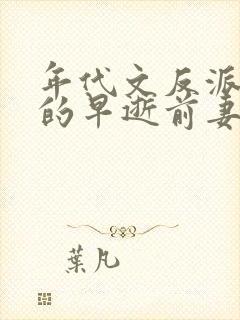 年代文反派
的早逝前妻
葉凡